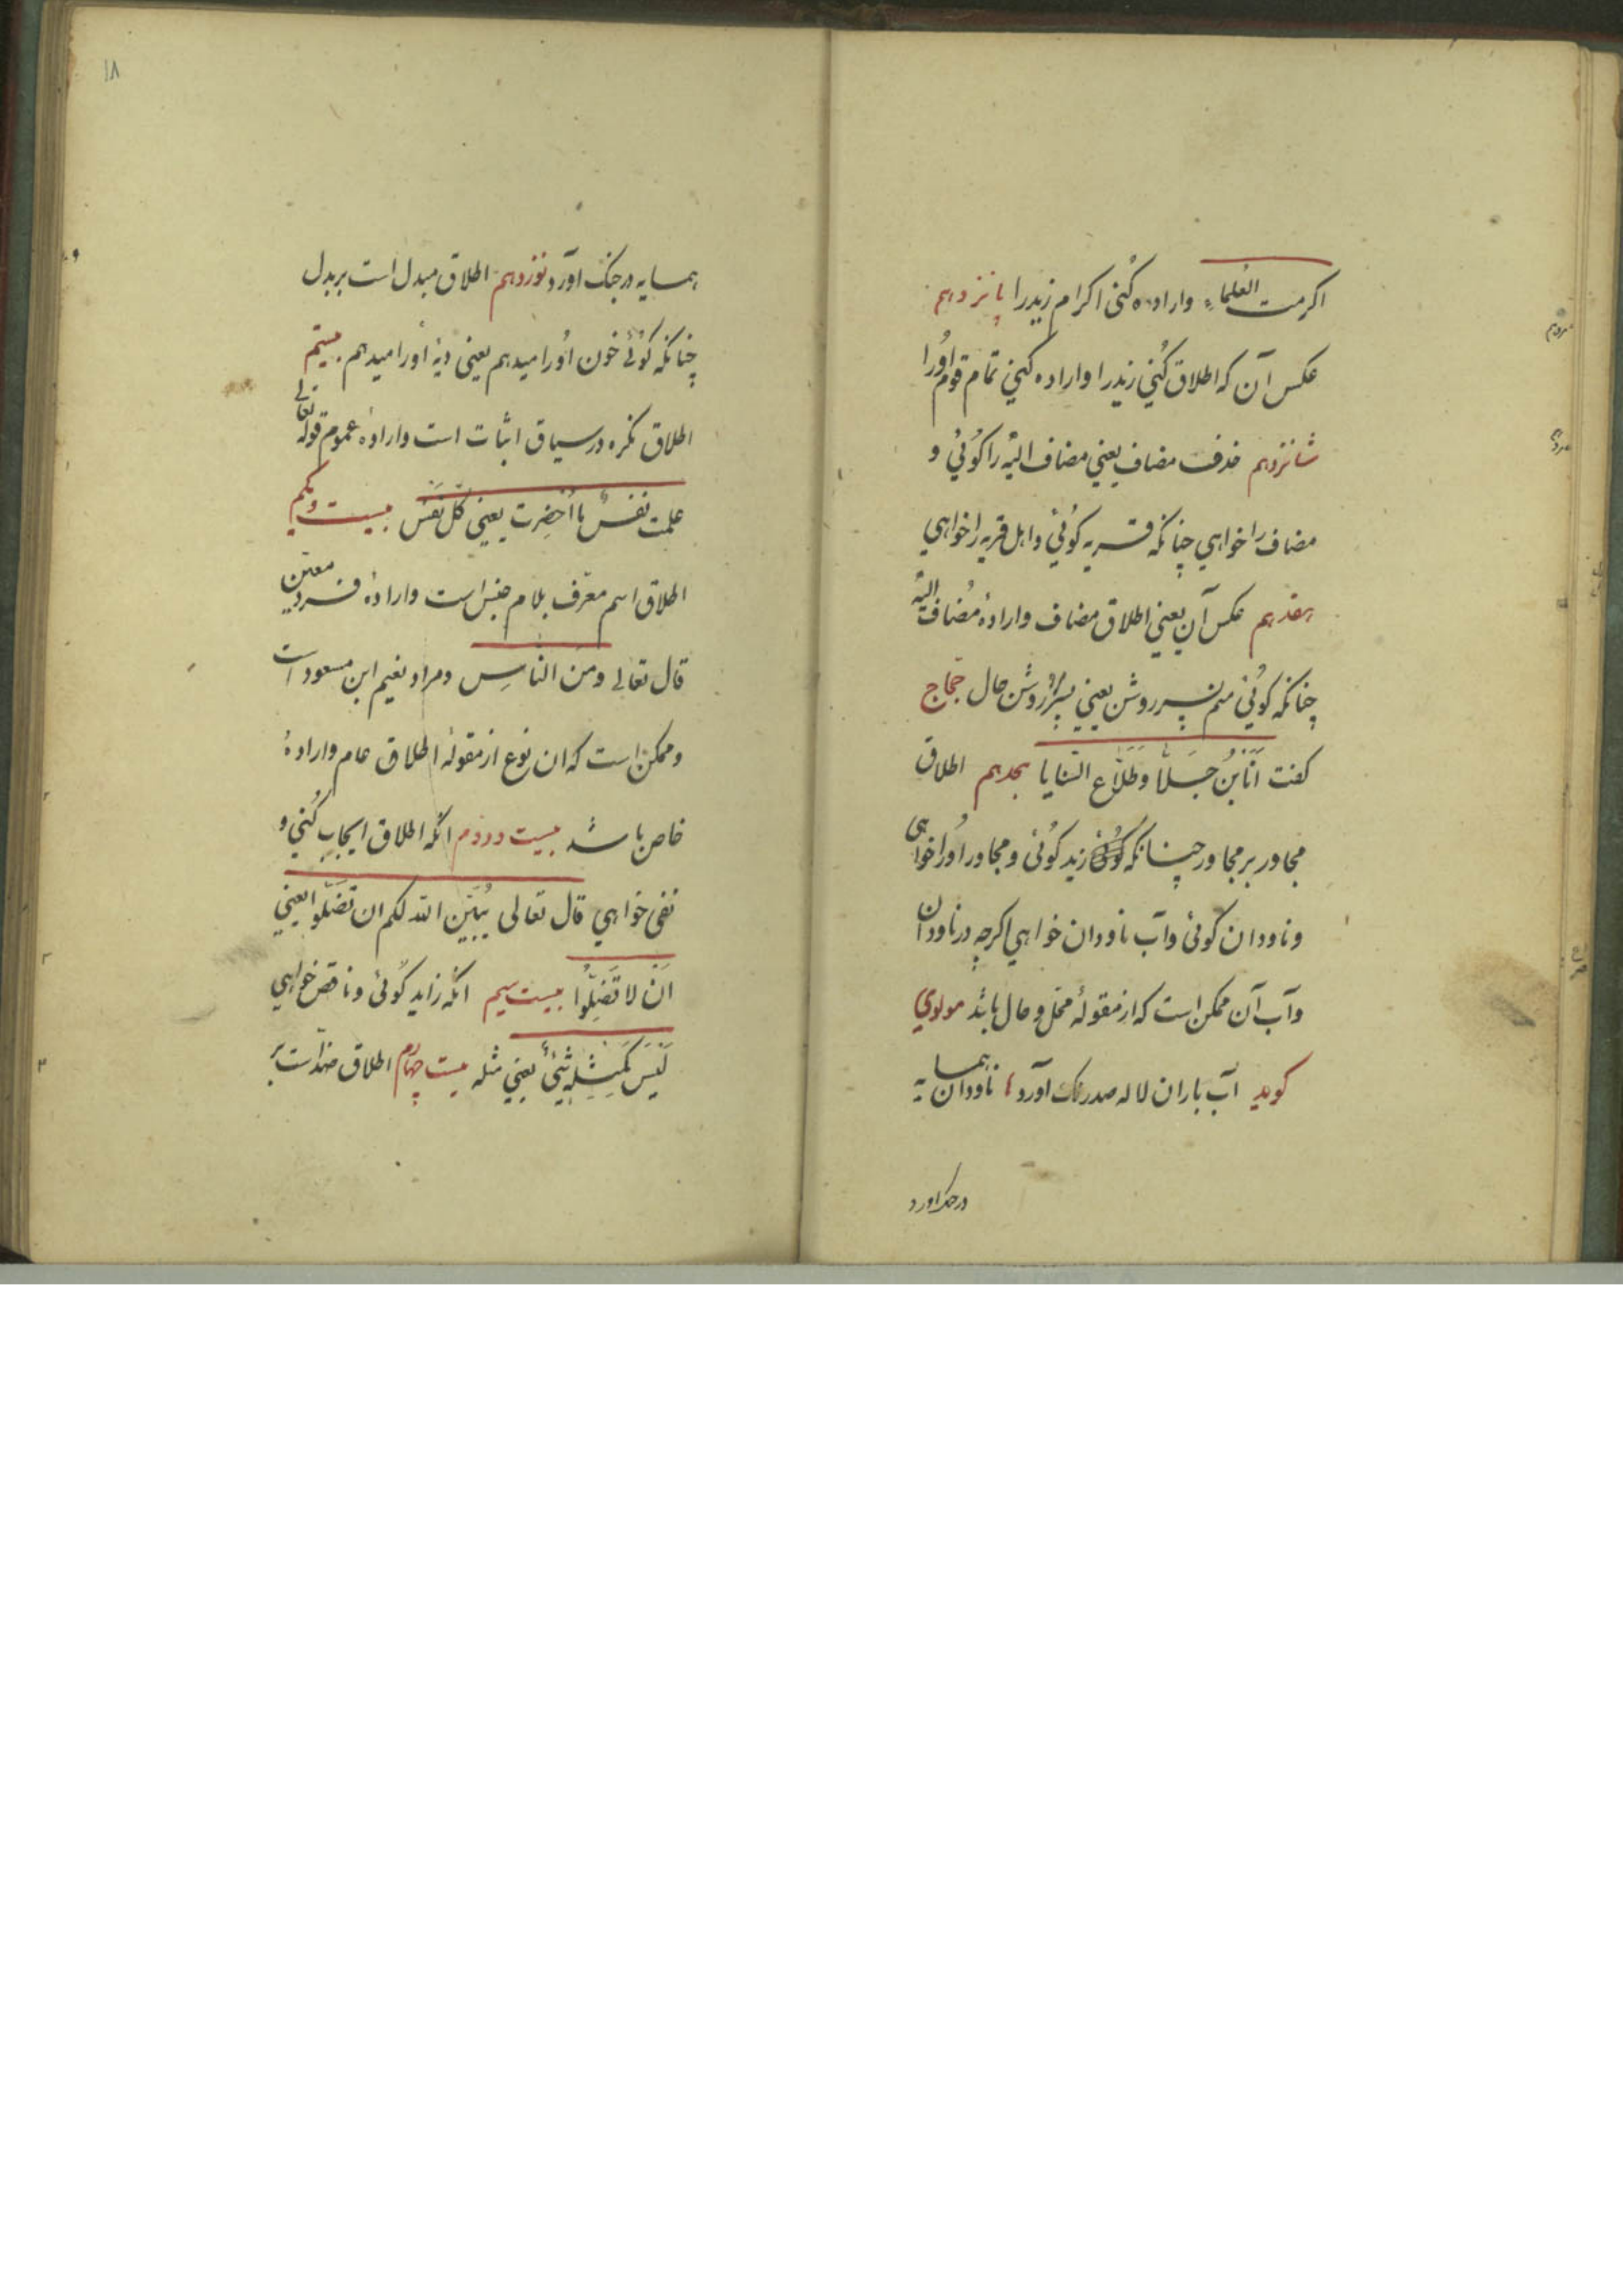 اکرمت العُلماء واراده کُنی اکرام زیدرا پانزدهم
عکس آن که اطلاق کُنی زیدرا واراده کنی تمام قوم اورا
شانزدهم حذف مضاف یعنی مضاف الیه را کوئی و
مضاف را خواهی چنانکه قریه کوئی واهل قریه را خواهی
هفدهم عکس آن یعنی اطلاق مضاف وارادهٔ مُضاف الیه
چنانکه کوئی منم پسر روشن یعنی پسر روشن حال حجاج
کفت اَنَابنُ جَلَا وطَلّاع الثنایا هجدهم اطلاق
مجاور بر مجاور چنانکه زید کوئی ومجاور اورا خواهی
وناودان کوئی وآب ناودان خواهی اکرچه درناودان
وآب آن ممکن است که از مقولهٔ محل و حال باشد مولوی
کوید آب باران لاله صدرنک آورد ناودان همسایه
درجنک آورد
۱۸
همسایه درجنک آورد نوزدهم اطلاق مبدل است بربدل
چنانکه کوئی خون اورا میدهم یعنی دیهٔ اورا میدهم بیستم
اطلاق نکره درسیاق اثبات است وارادهٔ عموم قوله تعالی
علمت نفسٌ ما اُحْضِرت یعنی کل نفس بیست ویکم
اطلاق اسم معرف بلام جنس است وارادهٔ فرد معین
قال تعالی ومن الناسِ ومراد نعیم ابن مسعود است
وممکن است که این نوع از مقولهٔ اطلاق عام وارادهٔ
خاص باشد بیست ودوم انکه اطلاق ایجاب کُنی و
نفی خواهی قال تعالی یُبَیّن الله لکم ان تضلّوا یعنی
اَنْ لا تَضِلُّوا بیست سیم انکه زاید کوئی وناقص خواهی
لَیْسَ کَمِثْلِهِ شَیْءٌ یعنی مثله بیست چهارم اطلاق ضد است بر